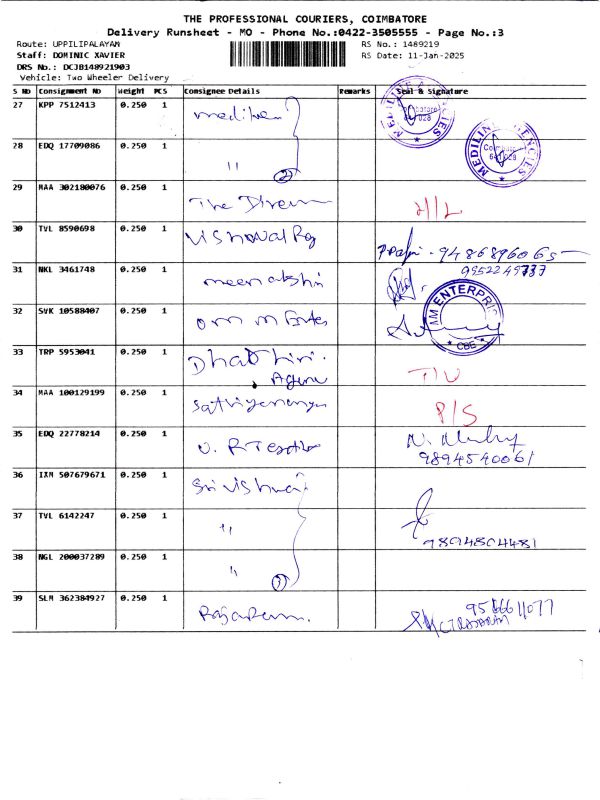 THE PROFESSIONAL COURIERS, COIMBATORE
Delivery Runsheet - MO - Phone No.:0422-3505555 - Page No.:3
Route: UPPILIPALAYAM RS No.: 1489219
Staff: DOMINIC XAVIER RS Date: 11-Jan-2025
DRS No.: DCJB148921903
Vehicle: Two Wheeler Delivery
S No Consignment No Weight PCS Consignee Details Remarks Seal & Signature
27 KPP 7512413 0.250 1
28 EDQ 17709086 0.250 1 " (2) MEDILINE AGENCIES
29 MAA 302180076 0.250 1 The
30 TVL 8590698 0.250 1 9486896065
31 NKL 3461748 0.250 1 meenakshi 9952249737
32 SVK 10588407 0.250 1 ENTERPRIS CBE
33 TRP 5953041 0.250 1 T/U
34 MAA 100129199 0.250 1 P/S
35 EDQ 22778214 0.250 1 9894540061
36 IXM 507679671 0.250 1 Sri
37 TVL 6142247 0.250 1 " 9894804481
38 NGL 200037289 0.250 1 "
39 SLM 362384927 0.250 1 9566611077